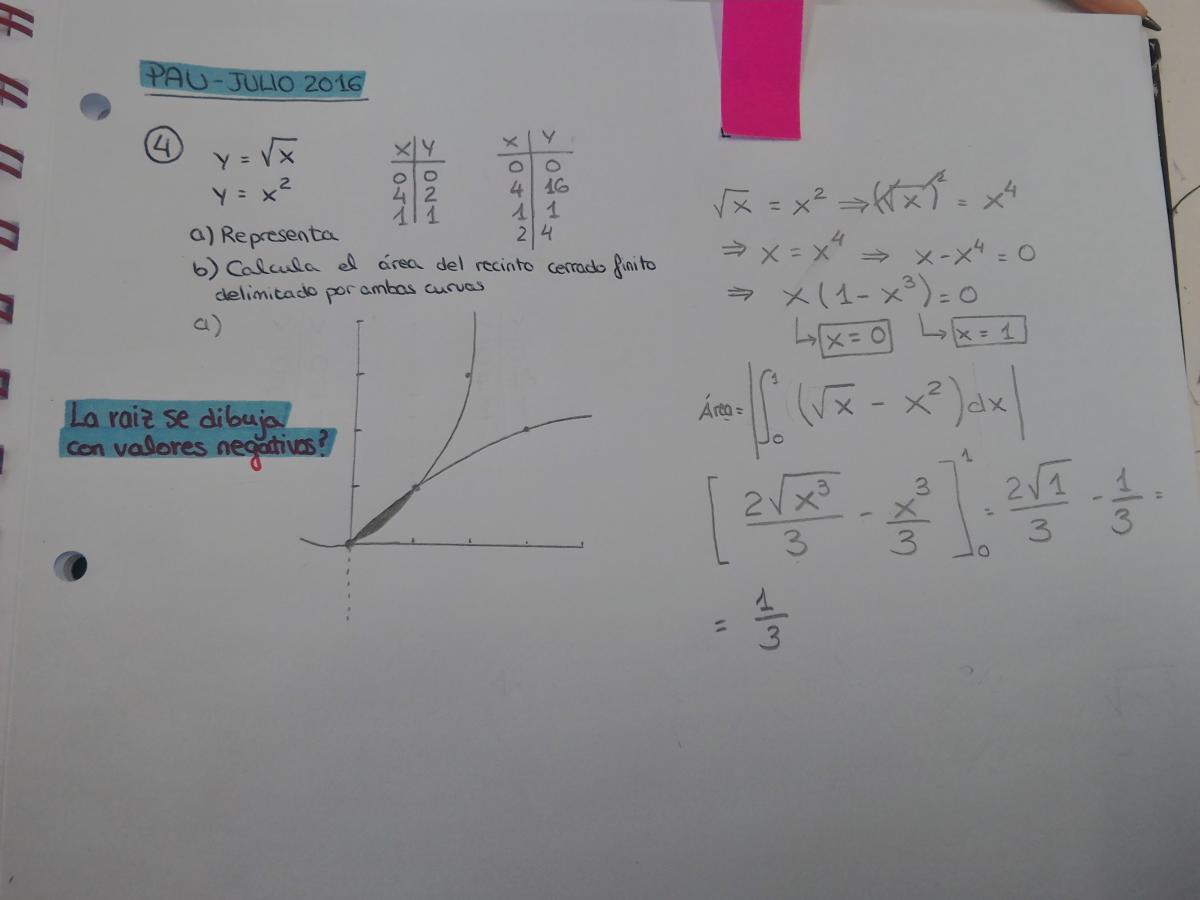 PAU-JULIO 2016
4
y = √x
y = x²
x | y
0 | 0
4 | 2
1 | 1
x | y
0 | 0
4 | 16
1 | 1
2 | 4
a) Representa
b) Calcula el área del recinto cerrado finito
delimitado por ambas curvas
a)
La raiz se dibuja
con valores negativos?
√x = x² ⇒ (√x)² = x⁴
⇒ x = x⁴ ⇒ x - x⁴ = 0
⇒ x(1 - x³) = 0
↳ x = 0 ↳ x = 1
Área = |∫₀¹ (√x - x²)dx|
[2√x³/3 - x³/3]₀¹ = 2√1/3 - 1/3 =
= 1/3